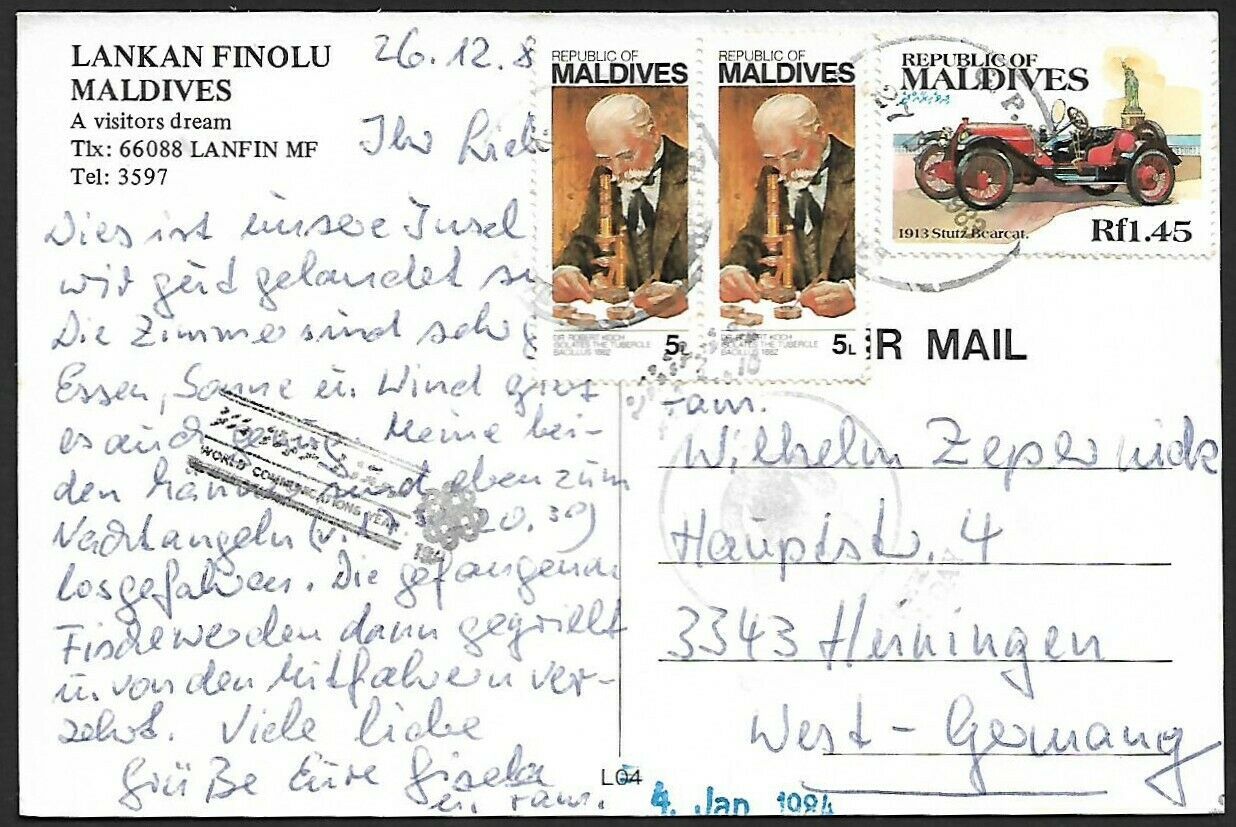 LANKAN FINOLU
MALDIVES
A visitors dream
Tlx: 66088 LANFIN MF
Tel: 3597
26.12.8
Ihr Lieb
Dies ist unsere Insel
wir gut gelandet
Die Zimmer sind sehr g
Essen, Sonne u. Wind gibt
es auch genug. Meine bei-
den Männer sind eben zum
Nachtangeln (v. 20.30)
losgefahren. Die gefangenen
Fische werden dann gegrillt
u. von den Mitfahrern ver-
zehrt. Viele liebe
Grüße Eure Gisela
u. Fam.
REPUBLIC OF
MALDIVES
DR. ROBERT KOCH
ISOLATES THE TUBERCLE
BACILLUS 1882
5L
REPUBLIC OF
MALDIVES
DR. ROBERT KOCH
ISOLATES THE TUBERCLE
BACILLUS 1882
5L
REPUBLIC OF
MALDIVES
1913 Stutz Bearcat.
Rf1.45
R MAIL
WORLD COMMUNICATIONS YEAR
Fam.
Wilhelm Zepernick
Hauptstr. 4
3343 Heiningen
West-Germany
L04
4. Jan 1984